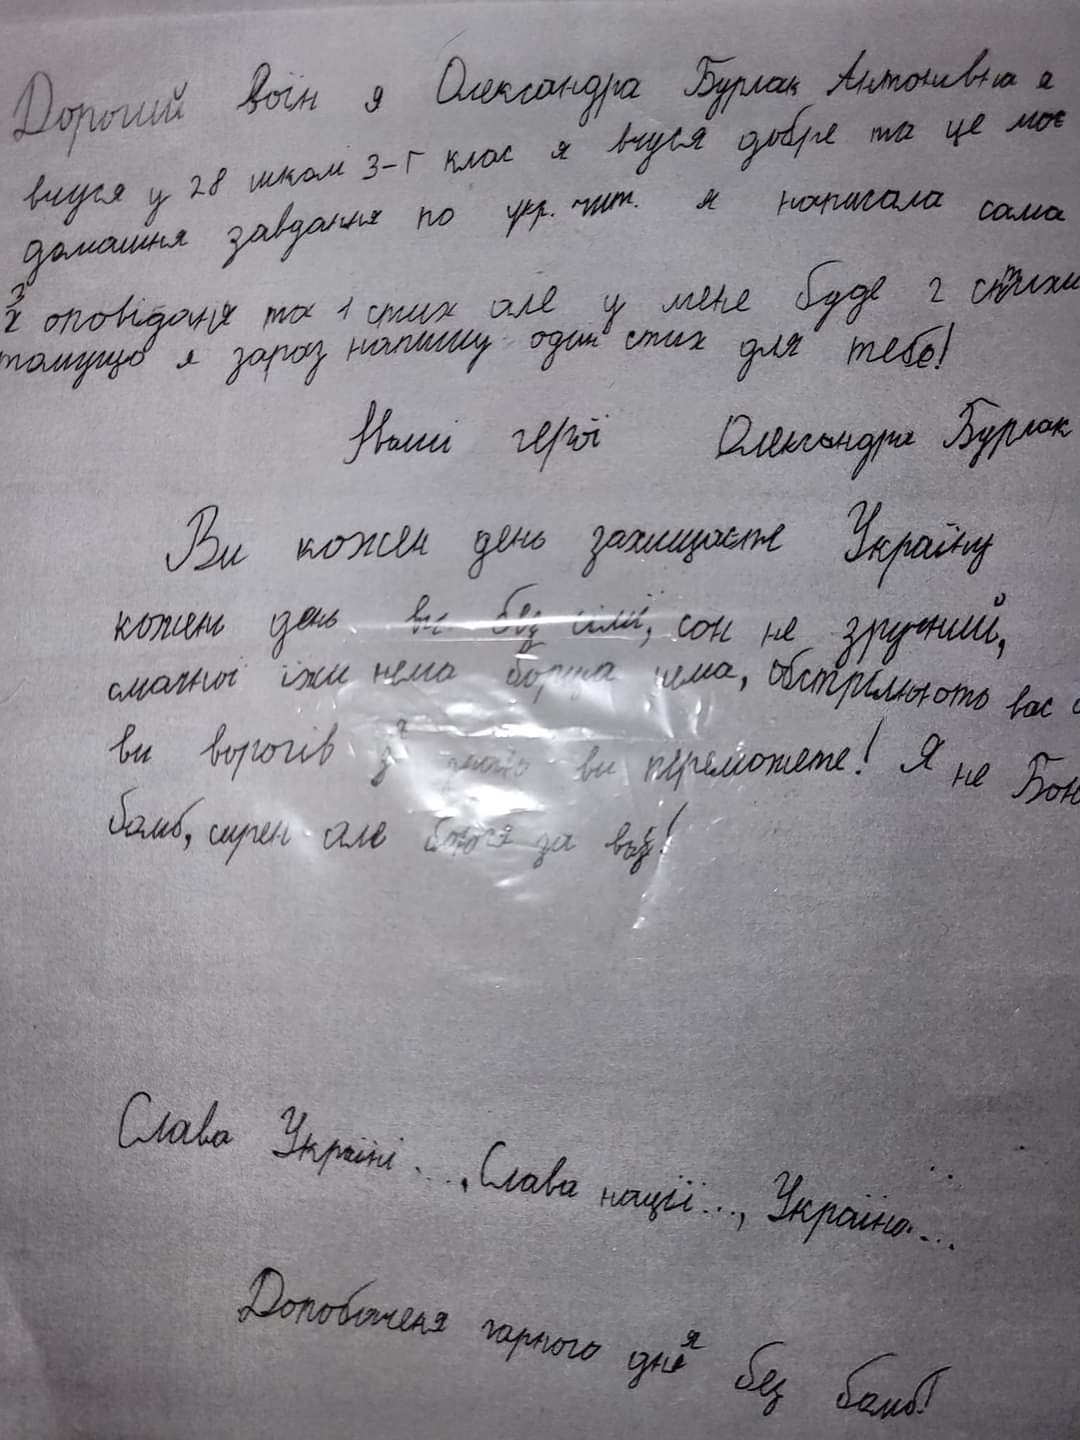 Дорогий Воїн я Олександра Бурлак Антонівна я
вчуся у 28 школі 3-Г клас я вчуся добре та це моє
домашня завдання по укр. чит. я написала сама
3 оповіданя та 1 стих але у мене буде 2 стихи
томущо я зараз напишу один стих для тебе!
Наші герої Олександра Бурлак
Ви кожен день захищаєте Україну
кожен день ви без сім'ї, сон не зручний,
смачної їжи нема борща нема, обстрілюють вас а
ви ворогів я знаю ви переможете! Я не Бою
бомб, сирен але боюся за вас!
Слава Україні..., Слава нації..., Україна...
Допобаченя гарного дня без бомб!